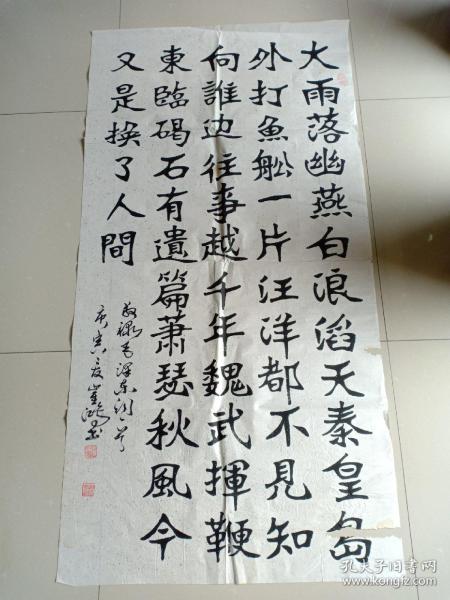 大雨落幽燕白浪滔天秦皇島
外打魚舩一片汪洋都不見知
向誰边往事越千年魏武揮鞭
東臨碣石有遺篇蕭瑟秋風今
又是换了人間
敬录毛泽东词一首
庚寅之夏崔
孔夫子旧书网
www.kongfz.com